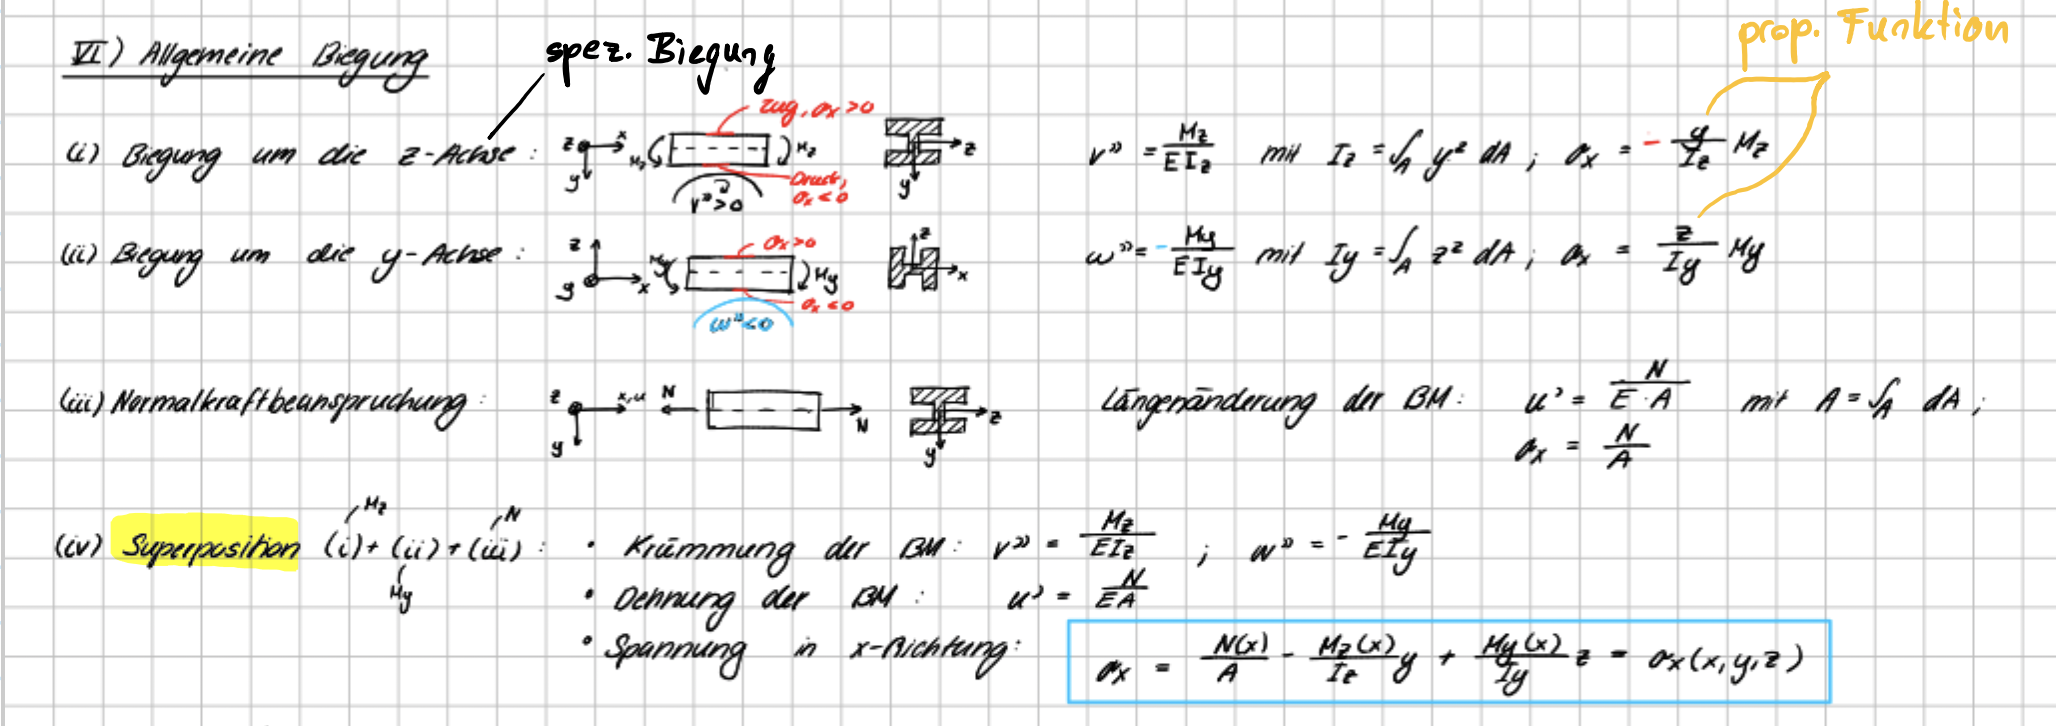 prop. Funktion
VI) Allgemeine Biegung
spez. Biegung
(i) Biegung um die z-Achse :
z x y
Mz Mz
Zug, σx>0
Druck, σx<0
v''>0
z y
v'' = Mz/EIz mit Iz = ∫A y² dA ; σx = - y/Iz Mz
(ii) Biegung um die y-Achse :
z y x
My My
σx>0
σx<0
w''<0
z x
w'' = - My/EIy mit Iy = ∫A z² dA ; σx = z/Iy My
(iii) Normalkraftbeanspruchung :
z x,u y
N N
z y
Längenänderung der BM : u' = N/E·A mit A = ∫A dA ;
σx = N/A
(iv) Superposition (i) + (ii) + (iii) :
Mz N My
• Krümmung der BM : v'' = Mz/EIz ; w'' = - My/EIy
• Dehnung der BM : u' = N/EA
• Spannung in x-Richtung : σx = N(x)/A - Mz(x)/Iz y + My(x)/Iy z = σx(x,y,z)